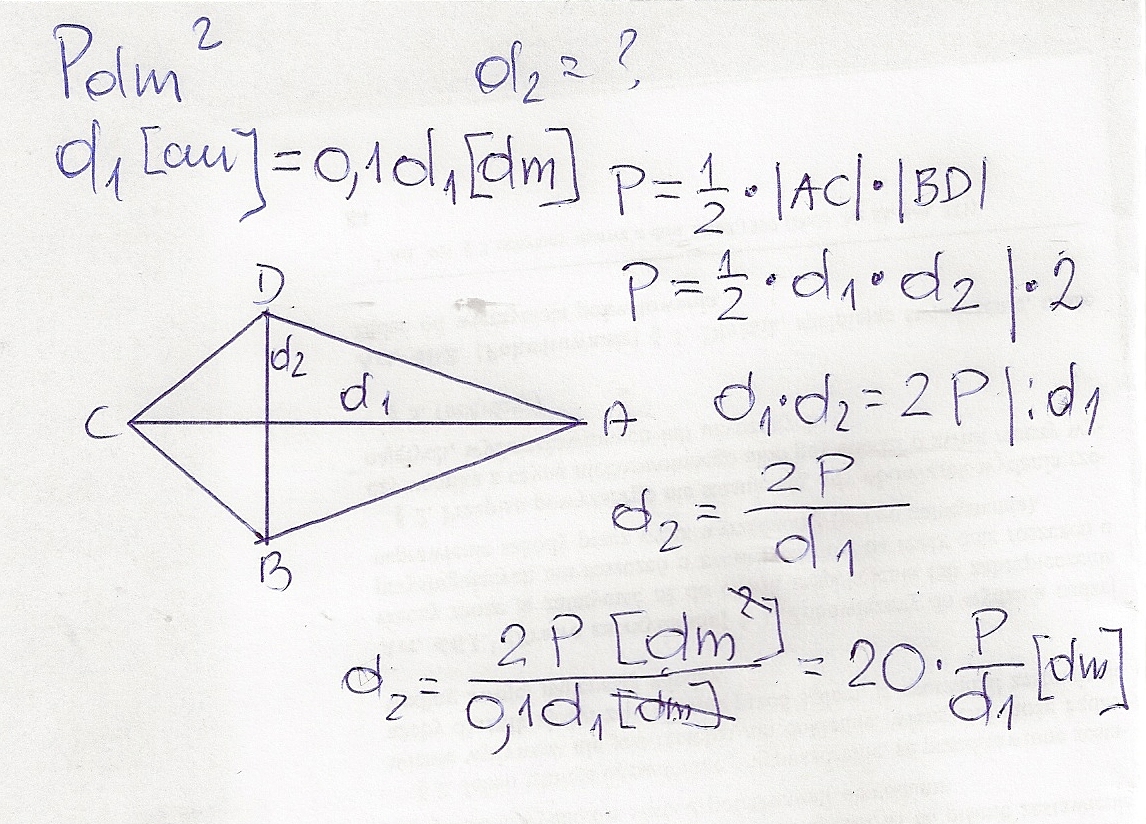 Pdm²
d₂ = ?
d₁ [cm] = 0,1d₁ [dm]
P = 1/2 · |AC| · |BD|
P = 1/2 · d₁ · d₂ |·2
D
d₂
d₁
C
A
B
d₁·d₂ = 2P |:d₁
d₂ = 2P/d₁
d₂ = 2P [dm²]/0,1d₁ [dm] = 20 · P/d₁ [dm]